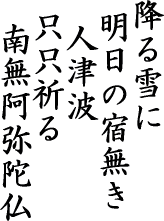 降る雪に
明日の宿無き
人津波
只只祈る
南無阿弥陀仏